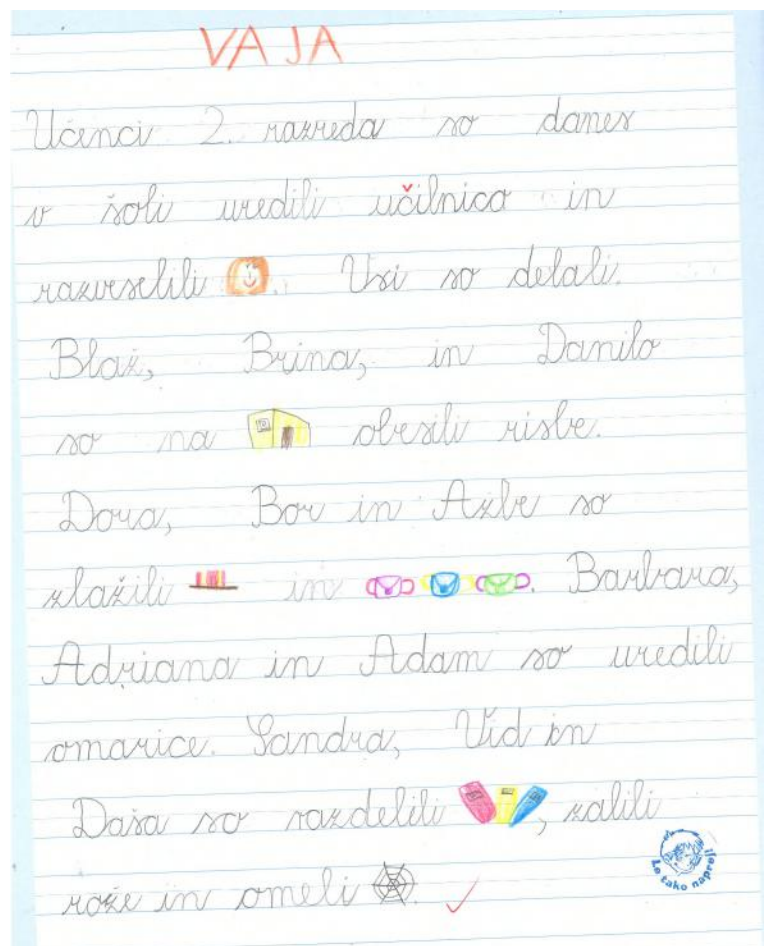 VAJA
Učenci 2. razreda so danes
v šoli uredili učilnico in
razveselili . Vsi so delali.
Blaž, Brina, in Danilo
so na obesili risbe.
Dora, Bor in Ažbe so
zlažili in . Barbara,
Adriana in Adam so uredili
omarice. Sandra, Vid in
Daša so razdelili , zalili
rože in omeli .
Le tako naprej!